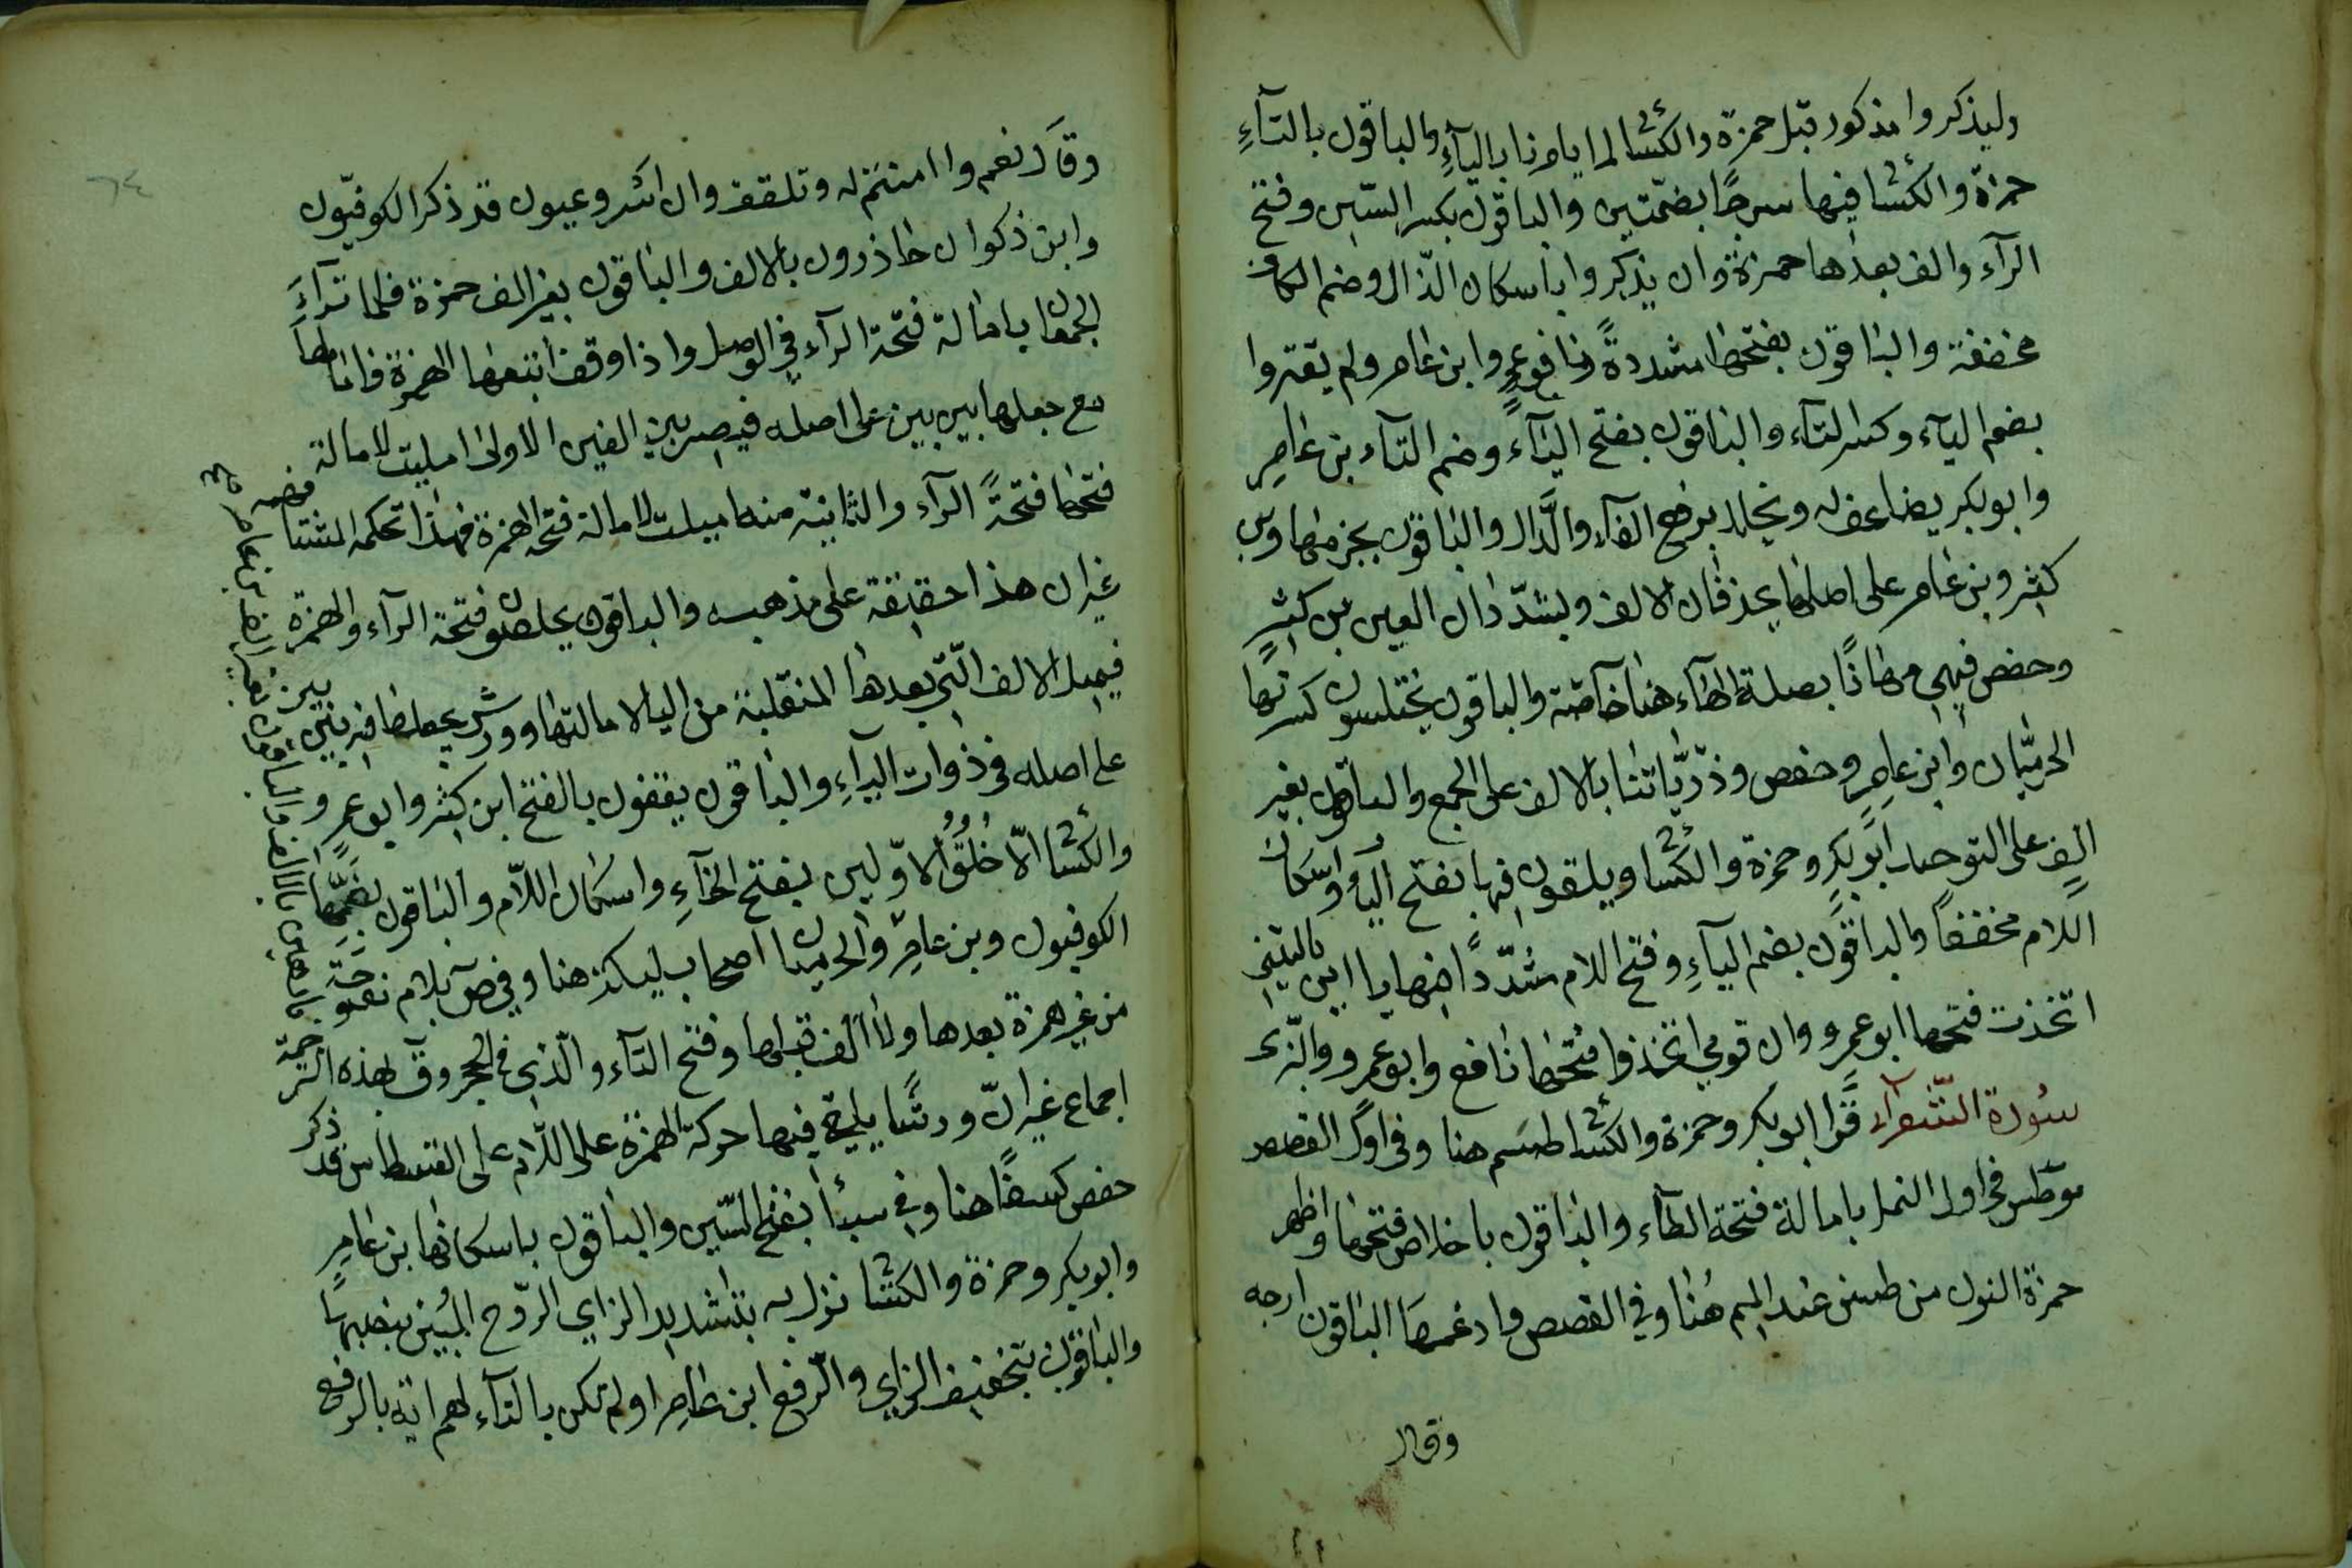 وليذكروا مذكور قبل حمزة والكشا لما يامرنا بالياءِ والباقون بالتآءِ
حمزة والكشا فيها سرجًا بضمّتين والباقون بكسر السّين وفتح
الرآء والف بعدها حمزة وان يذكروا باسكان الذّال وضم الكاف
مخففة والباقون بفتحها مشددةً نافع وابن عامر ولم يقتروا
بضم اليآء وكسر التآء والباقون بفتح اليآء وضم التآء بن عامرٍ
وابو بكر يضاعف له ويخلد برفع الفآء والدّال والباقون بجزمها وبن
كثير وبن عامر على اصلهما يحذفان الالف ويشدّدان العين بن كثيرٍ
وحفص فيهي مهانًا بصلة الهآء هنا خآصّة والباقون يختلسون كسرتها
الحرميّان وابن عامرٍ وحفص وذرّيّاتنا بالالف على الجمع والباقون بغير
الفٍ على التوحيد ابو بكرٍ وحمزة والكشا ويلقون فيها بفتح اليآء واسكان
اللام مخففاً والباقون بضم اليآءِ وفتح اللام مشدّدًا فيها يا اين ياليتني
اتخذت فتحها ابو عمرو وان قومي اتخذوا فتحها نافع وابو عمرو والبزى
سورة الشّعرآء قرا ابو بكر وحمزة والكشا طسم هنا وفي اوّل القصص
وطس في اول النمل بامالة فتحة الطآء والباقون باخلاص فتحها واظهر
حمزة النون من طسن عند الميم هُنا وفي القصص وادغمها الباقون ارجه
وقال
٦٤
وقال نعم وا امنتم له وتلقف وان اسر وعيون قد ذكر الكوفيّون
وابن ذكوان حاذرون بالالف والباقون بغير الف حمزة فلما تراءَ
الجمعان بامالة فتحة الرآء في الوصل واذا وقف اتبعها الهمزة فامالها
مع جعلها بين بين على اصله فيصير بين الفين الاولى اميلت لامالة
فتحها فتحةً الرآء والثانية منه اميلت لامالة فتحة الهمزة فهذا تحكمه المشتا
غير ان هذا حقيقة على مذهبه والباقون يخلصون فتحة الرآء والهمزة
فيميل الالف الّتي بعدها المنقلبة من اليا لامالتها وورش يجعلها فيه بين بين
على اصله في ذوات اليآءِ والباقون يقفون بالفتح ابن كثير وابو عمرو
والكشا الّا خلقُ الاوّلين بفتح الخآءِ واسكان اللّام والباقون بضمّهما
الكوفيون وبن عامرٍ والحرميان اصحاب ليكة هنا وفي ص بلام مفتوحة
من غير همزة بعدها ولا الف قبلها وفتح التآء والّذي في الحجر وقٓ بهذه الترجمة
اجماع غير انّ ورشًا يلقي فيها حركة الهمزة على اللّام على القسطاس قد ذكر
حفص كسفًا هنا وفي سبأ بفتح السّين والباقون باسكانها بن عامرٍ
وابو بكر وحمزة والكشا نزل به بتشديد الزاي الرّوح المُبين بنصبهما
والباقون بتخفيف الزاي والرّفع ابن عامر اولم تكن بالتآء لهم اية بالرفع